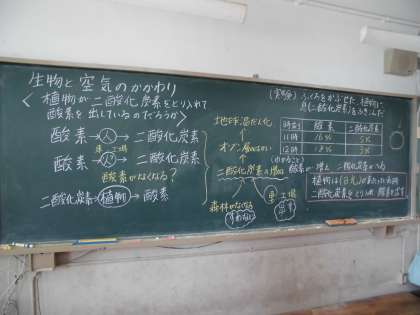 生物と空気のかかわり
植物が二酸化炭素をとり入れて
酸素を出しているのだろうか
酸素→人→二酸化炭素
車 工場
酸素→人→二酸化炭素
酸素がなくなる?
二酸化炭素→植物→酸素
地球温だん化
↑
オゾン層はかい
↑
二酸化炭素の増加
車 工場
森林がなくなる
(実験) ふくろをかぶせた植物に
息(二酸化炭素)をふきこんだ
時こく 酸素 二酸化炭素
11時 16% 5%
12時 18%
(わかること)
酸素が増え 二酸化炭素がへる
植物は(日光)が当たった時
二酸化炭素をとり入れ 酸素を出す